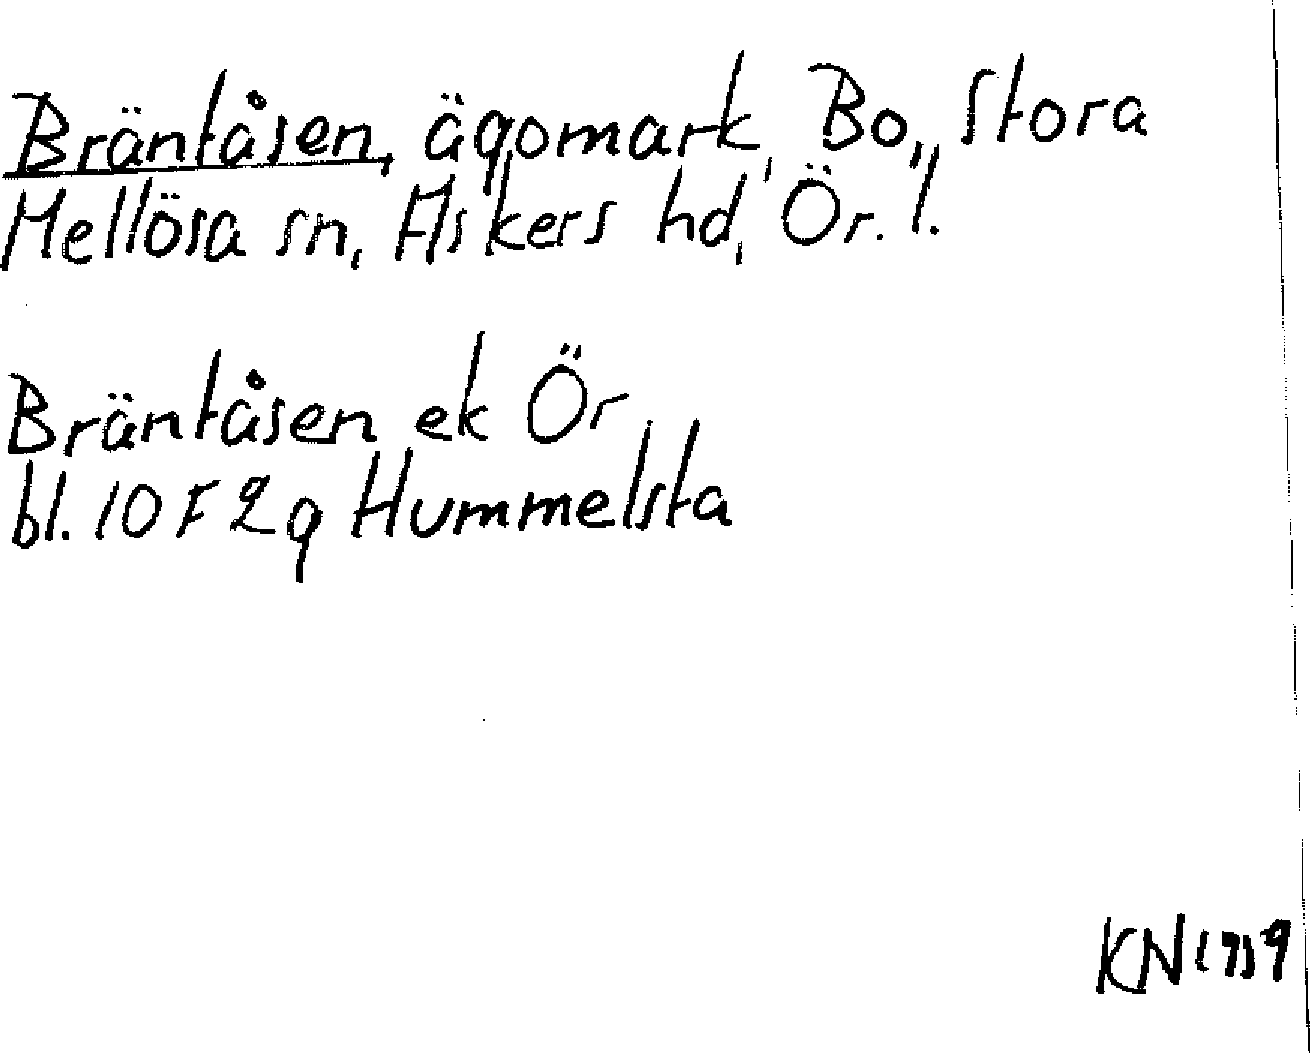 Bräntåsen, ägomark, Bo, Stora
Mellösa sn, Askers hd, Ör. l.
Bräntåsen ek Ör
bl. 10 F 2g Hummelsta
KN (7)9